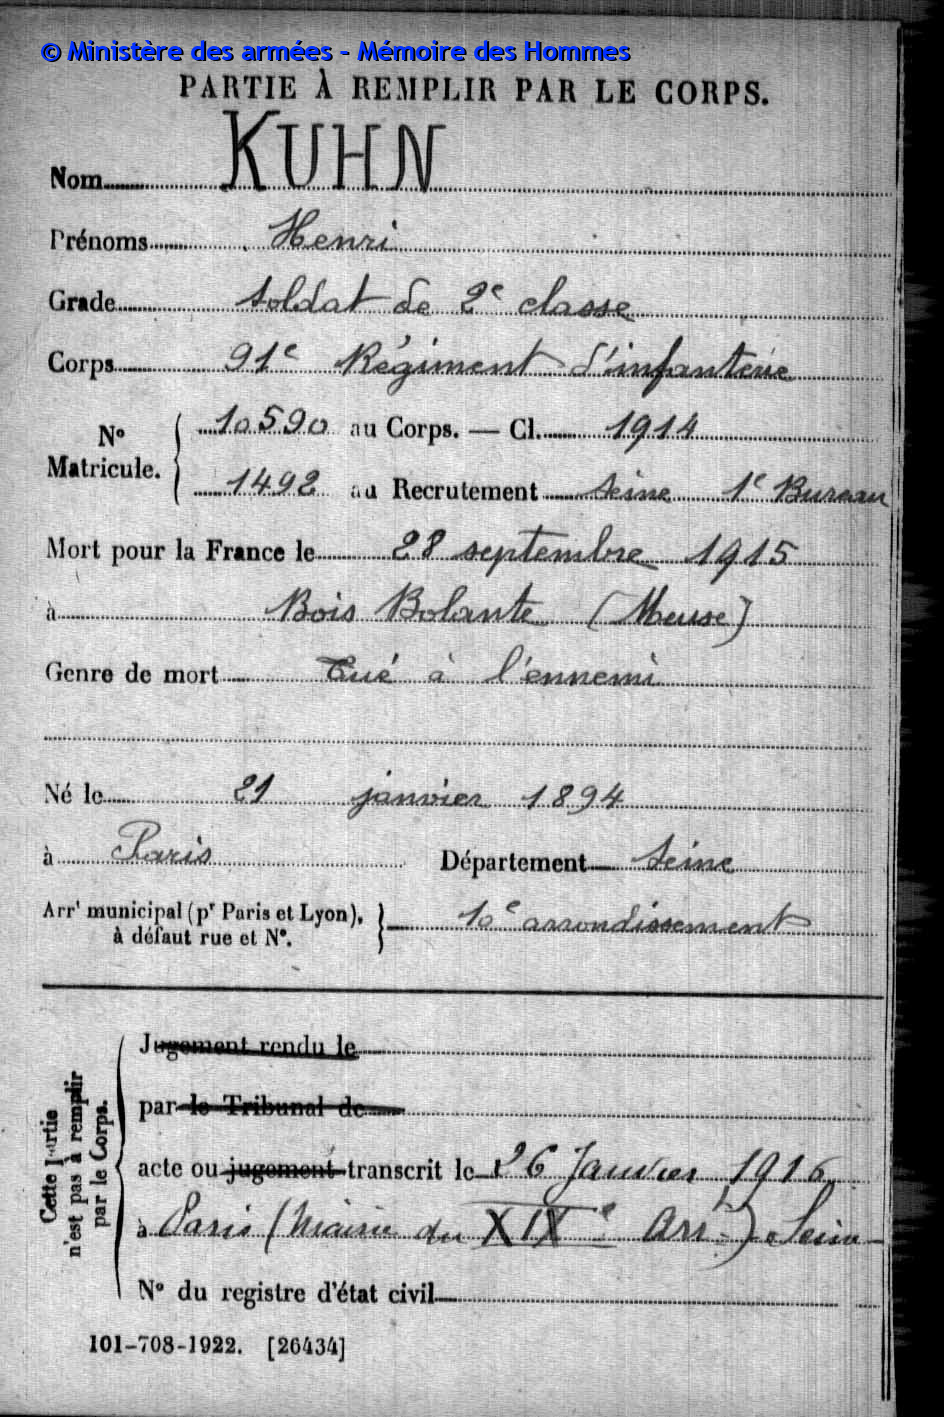 © Ministère des armées - Mémoire des Hommes
PARTIE À REMPLIR PAR LE CORPS.
Nom KUHN
Prénoms Henri
Grade soldat de 2e classe
Corps 91e Régiment d'infanterie
No Matricule. 10590 au Corps. — Cl. 1914
1492 au Recrutement Seine 1e Bureau
Mort pour la France le 28 septembre 1915
à Bois Bolante (Meuse)
Genre de mort Tué à l'ennemi
Né le 21 janvier 1894
à Paris Département Seine
Arrt municipal (pr Paris et Lyon), à défaut rue et No. 10e arrondissement
Cette Partie n'est pas à remplir par le Corps.
Jugement rendu le
par le Tribunal de
acte ou jugement transcrit le 26 Janvier 1916
à Paris (Mairie du XIXe Arrt) Seine
No du registre d'état civil
101-708-1922. [26434]